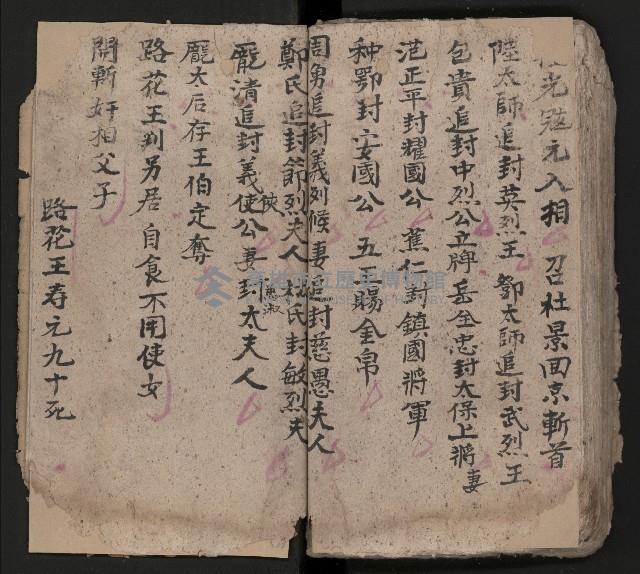 光寇元入相 召杜景回京斬首
陸太師追封英烈王 鄧太師追封武烈王
包貴追封中烈公立牌岳全忠封太保上將妻
范正平封耀國公 蕉仁封鎮國將軍
种鄂封安國公 五王賜金帛
周勇追封義列候妻 封慈愚夫人
鄭氏追封節烈夫人 氏封敏烈夫
龐清追封義俠使公妻封太夫人
淑
龐太后存王伯定奪
路花王判另居自食不用使女
開斬奸相父子
路花王寿元九十死
高雄市立歷史博物館